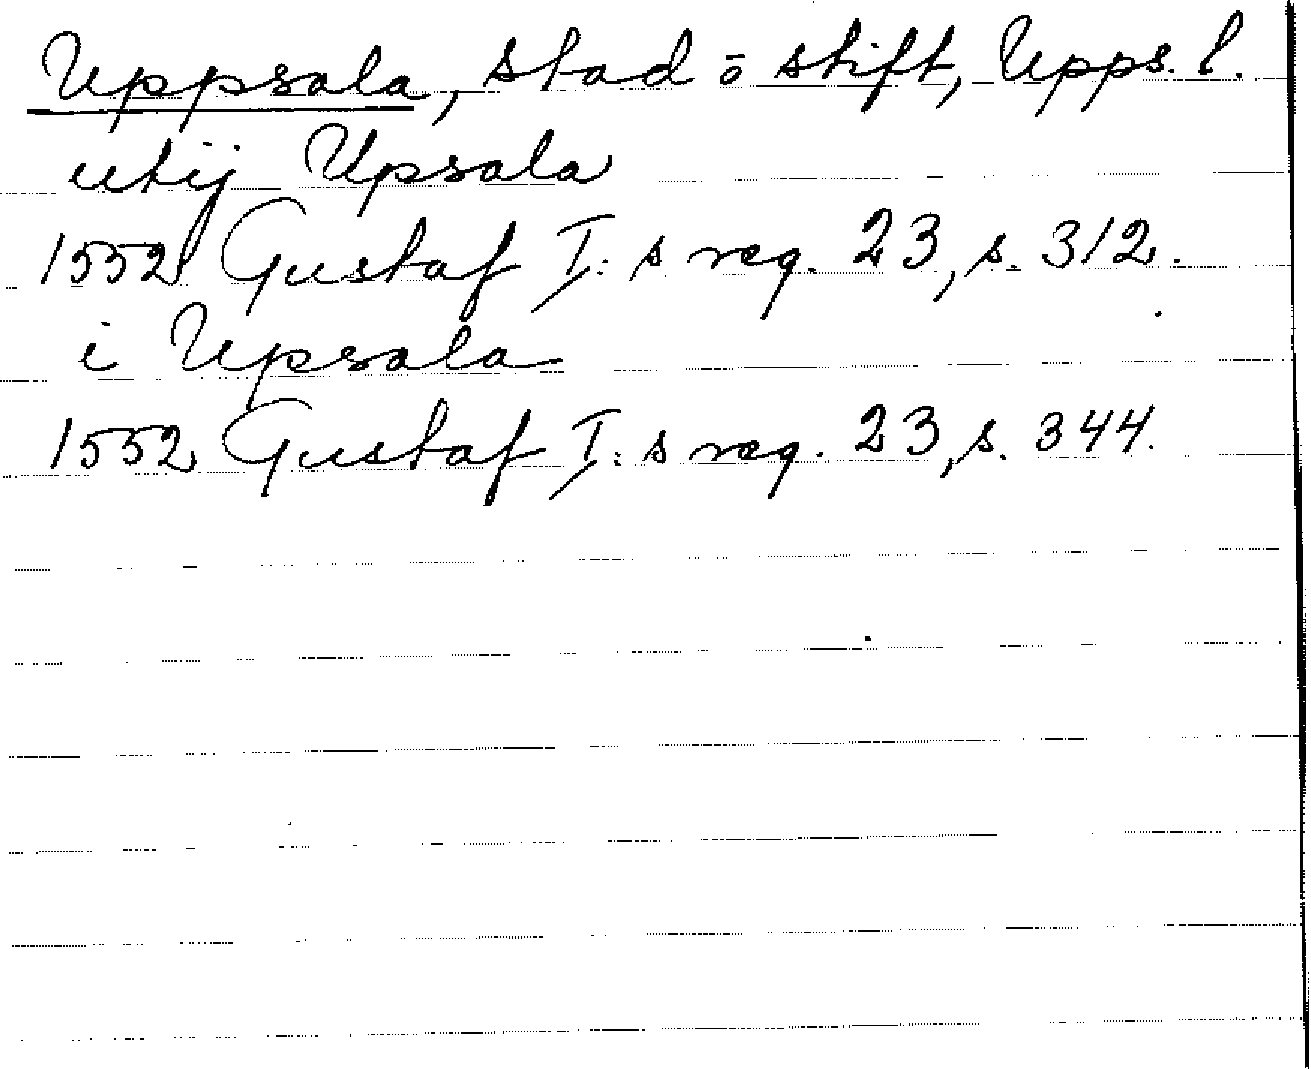 Uppsala, stad ō stift, Upps. l.
utij Upsala
1552 Gustaf I:s reg. 23, s. 312.
i Upsala
1552 Gustaf I:s reg. 23, s. 344.